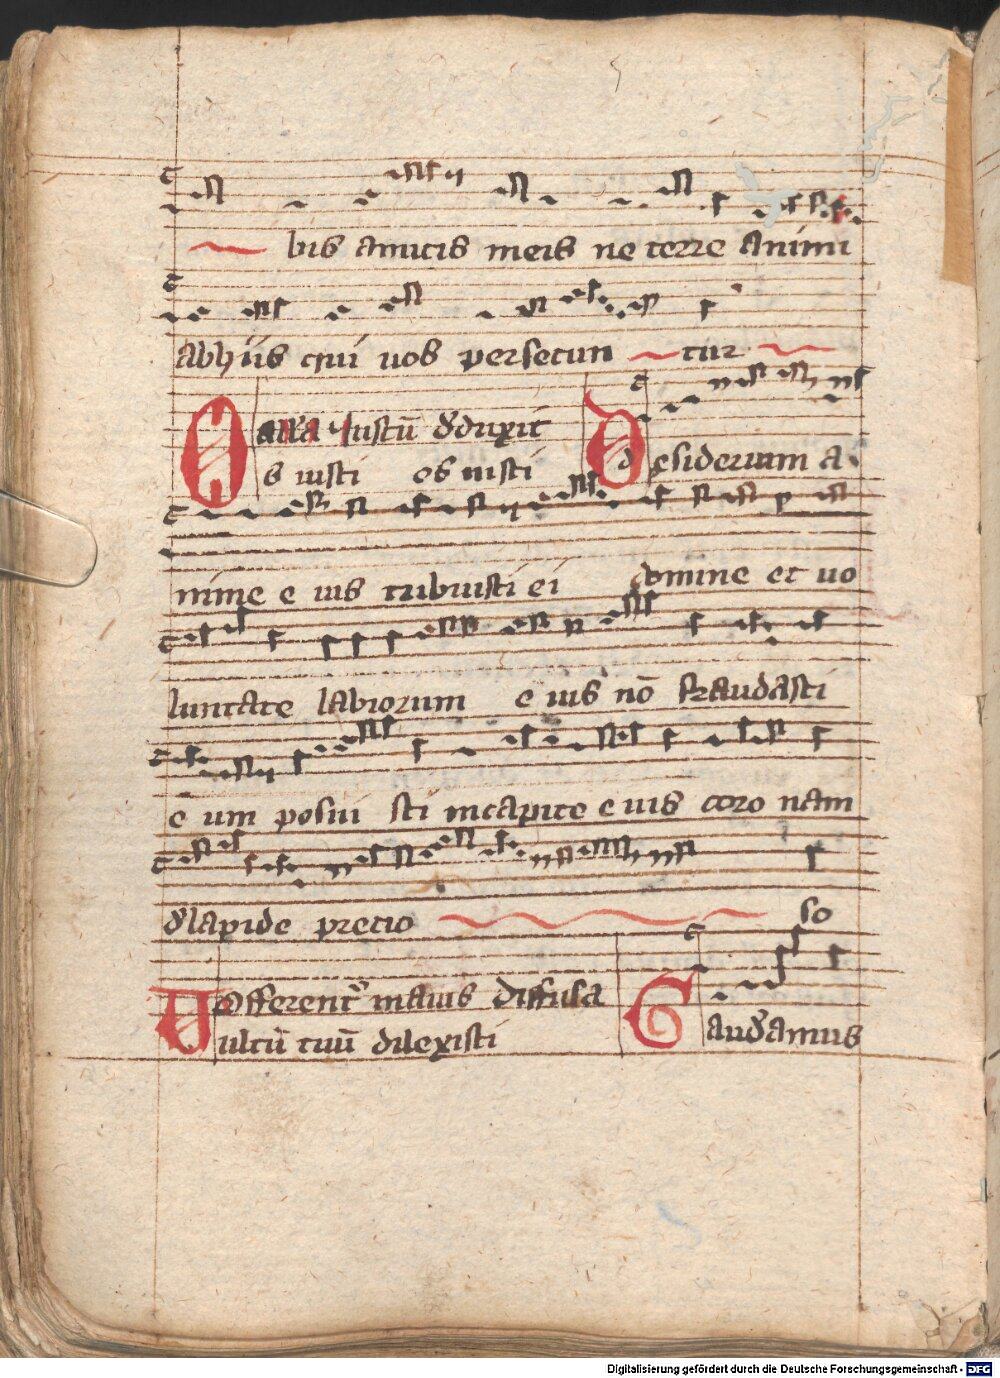 bis amicis meis ne terre animi
ab hiis qui uos persecun tur
Alla Iustū dduxit
Os iusti os iusti
Desiderium a
nime e ius tribuisti ei domine et uo
luntate labiorum e ius nō fraudasti
e um posui sti in capite e uis coro nam
d lapide precio so
Offerent᷑ maius diffusa
Uultū tuū dilexisti
Gaudamus
Digitalisierung gefördert durch die Deutsche Forschungsgemeinschaft - DFG